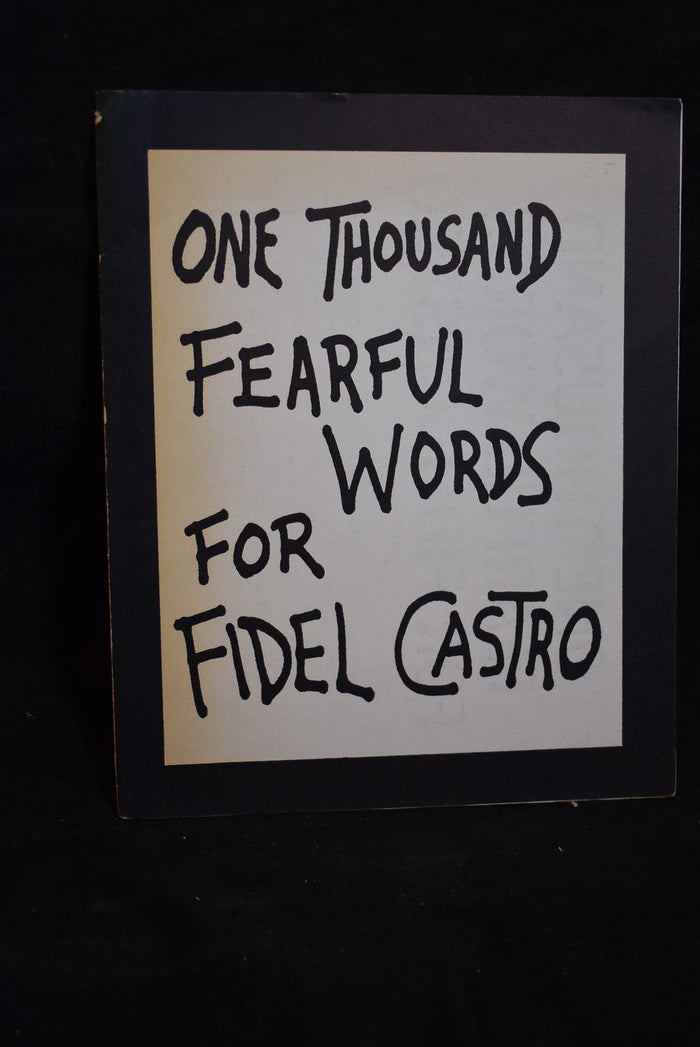 ONE THOUSAND
FEARFUL
WORDS
FOR
FIDEL CASTRO